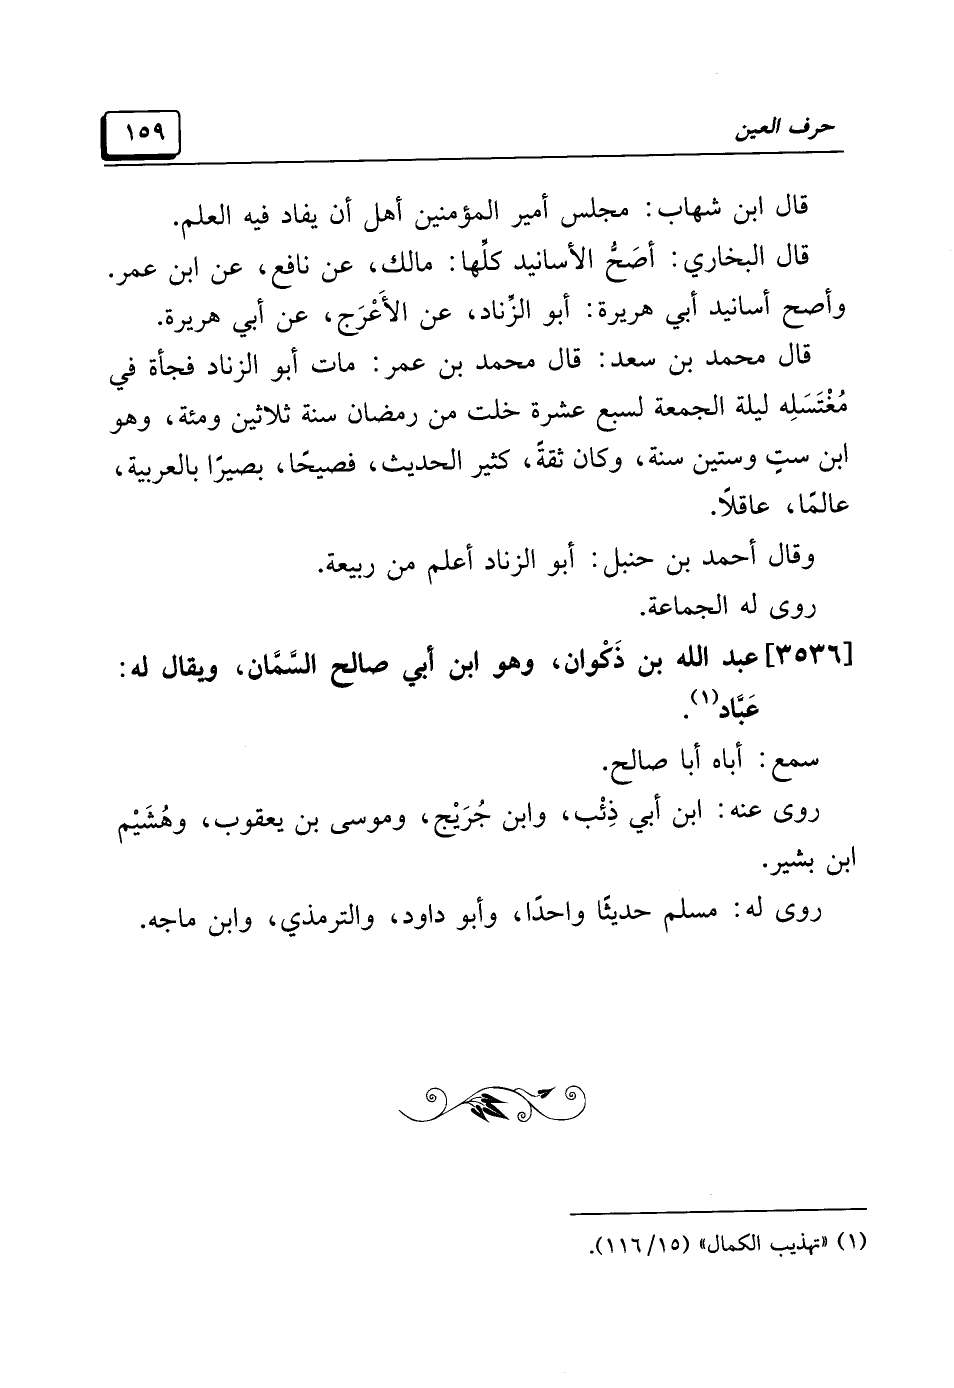 حرف العين
١٥٩
قال ابن شهاب: مجلس أمير المؤمنين أهل أن يفاد فيه العلم.
قال البخاري: أصَحُّ الأسانيد كلِّها: مالك، عن نافع، عن ابن عمر.
وأصح أسانيد أبي هريرة: أبو الزِّناد، عن الأَعْرَج، عن أبي هريرة.
قال محمد بن سعد: قال محمد بن عمر: مات أبو الزناد فجأة في
مُغْتَسَلِه ليلة الجمعة لسبع عشرة خلت من رمضان سنة ثلاثين ومئة، وهو
ابن ستٍ وستين سنة، وكان ثقةً، كثير الحديث، فصيحًا، بصيرًا بالعربية،
عالمًا، عاقلاً.
وقال أحمد بن حنبل: أبو الزناد أعلم من ربيعة.
روى له الجماعة.
[٣٥٣٦] عبد الله بن ذَكْوان، وهو ابن أبي صالح السَّمَّان، ويقال له:
عَبَّاد(١).
سمع: أباه أبا صالح.
روى عنه: ابن أبي ذِئْب، وابن جُرَيْج، وموسى بن يعقوب، وهُشَيْم
ابن بشير.
روى له: مسلم حديثًا واحدًا، وأبو داود، والترمذي، وابن ماجه.
(١) «تهذيب الكمال» (١١٦/١٥).